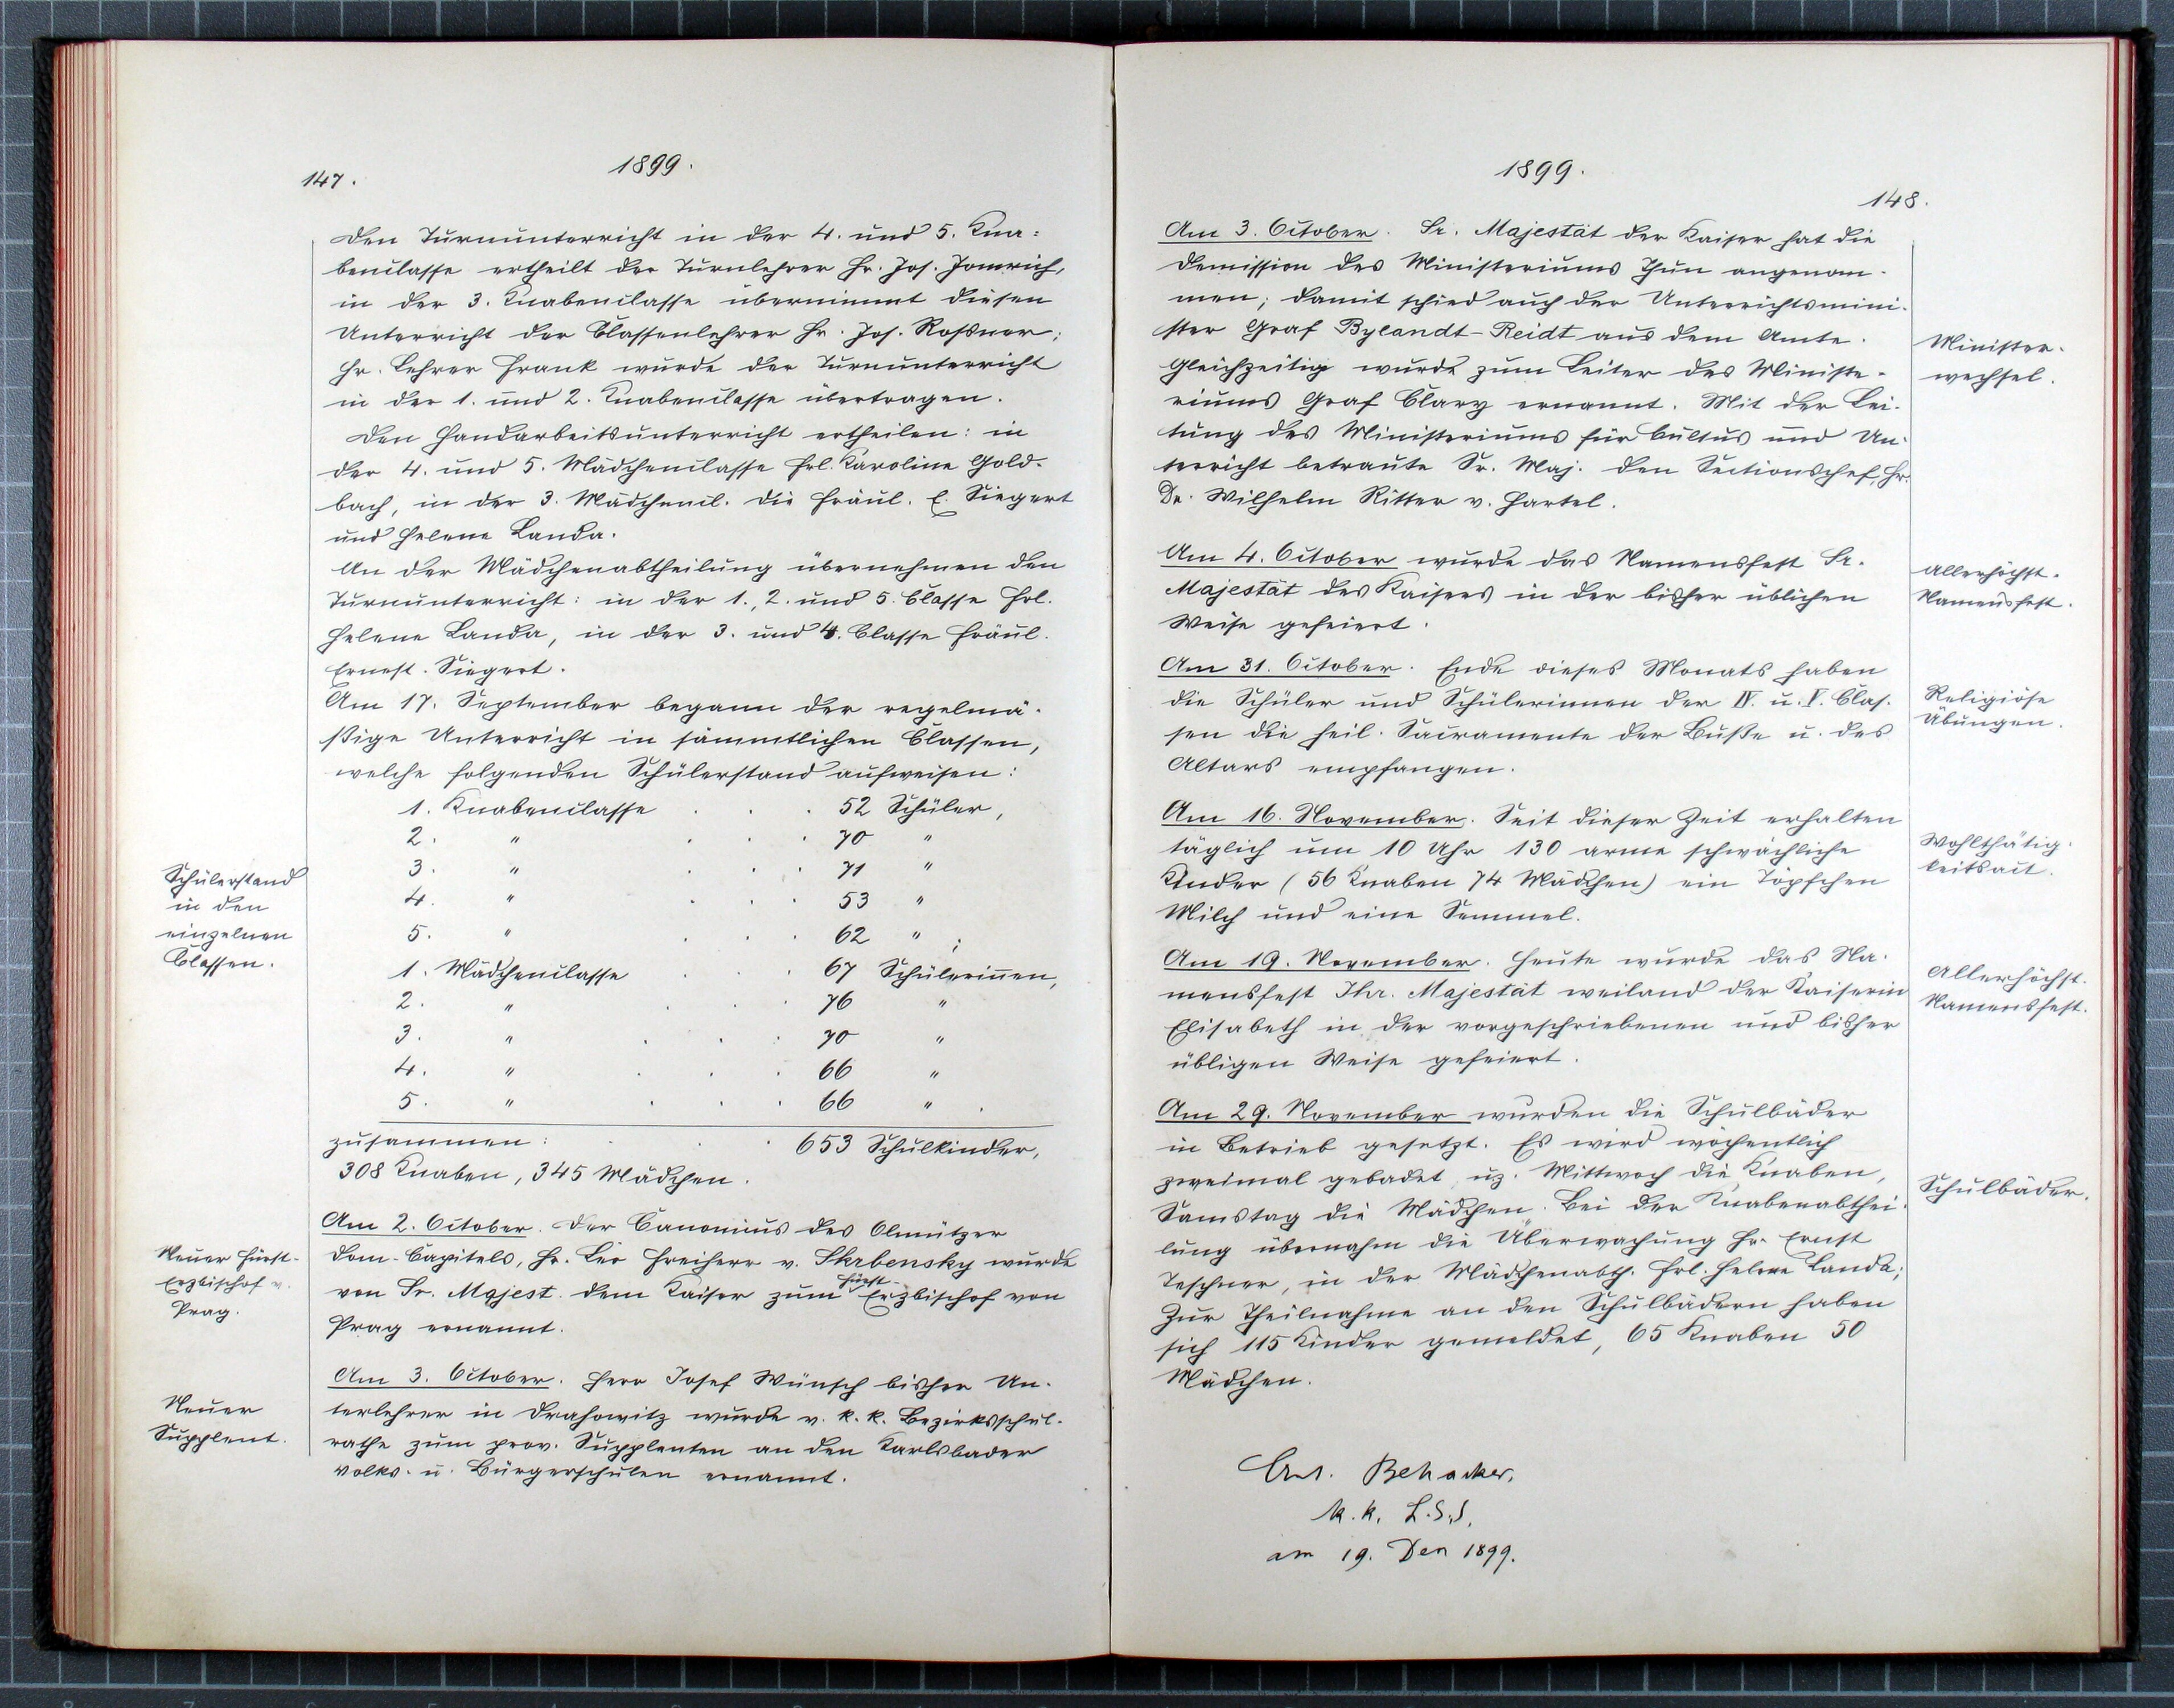 147.
1899.
Den Turnunterricht in der 4. und 5. Kna-
benclasse ertheilt der Turnlehrer Hr. Jos. Janurich,
in der 3. Knabenclasse übernimmt diesen
Unterricht der Classenlehrer Hr. Jos. Roßner;
Hr. Lehrer Frank wurde der Turnunterricht
in der 1. und 2. Knabenclasse übertragen.
Den Handarbeitsunterricht ertheilen: in
der 4. und 5. Mädchenclasse Frl. Karoline Gold-
bach, in der 3. Mädchencl. die Fräul. E. Siegert
und Helene Landa.
An der Mädchenabtheilung übernehmen den
Turnunterricht: in der 1., 2. und 5. Classe Frl.
Helene Landa, in der 3. und 4. Classe Fräul.
Ernest. Siegert.
Am 17. September begann der regelmä-
ßige Unterricht in sämmtlichen Classen,
welche folgenden Schülerstand aufweisen:
Schülerstand
in den
einzelnen
Classen.
1. Knabenclasse . . 52 Schüler,
2. " . . . 70 "
3. " . . . 71 "
4. " . . . 53 "
5. " . . . 62 " ;
1. Mädchenclasse . . . 67 Schülerinen,
2. " . . 76 "
3. " . . . 70 "
4. " . . . 66 "
5. " . . . 66 " .
zusammen: . . . 653 Schulkinder,
308 Knaben, 345 Mädchen.
Neuer Fürst-
Erzbischof v.
Prag.
Am 2. October. Der Canonicus des Olmützer
Dom-Capitels, Hr. Leo Freiherr v. Skrbensky wurde
von Sr. Majest. dem Kaiser zum Fürst-Erzbischof von
Prag ernannt.
Neuer
Supplent.
Am 3. October. Herr Josef Wünsch bisher Un-
terlehrer in Drahowitz wurde v. k. k. Bezirksschul-
rathe zum prov. Supplenten an den Karlsbader
Volks- u. Bürgerschulen ernannt.
1899.
148.
Am 3. October. Sr. Majestät der Kaiser hat die
Demission des Ministeriums Thun angenom-
men; damit schied auch der Unterrichtsmini-
ster Graf Bylandt-Reidt aus dem Amte.
Gleichzeitig wurde zum Leiter des Ministe-
riums Graf Clary ernannt. Mit der Lei-
tung des Ministeriums für Cultus und Un-
terricht betraute Sr. Maj. den Sectionschef, Hr.
Dr. Wilhelm Ritter v. Hartel.
Minister-
wechsel.
Am 4. October wurde das Namensfest Sr.
Majestät des Kaisers in der bisher üblichen
Weise gefeiert.
Allerhöchst.
Namensfest.
Am 31. October. Ende dieses Monats haben
die Schüler und Schülerinnen der IV. u. V. Clas-
sen die heil. Sacramente der Buße u. des
Altars empfangen.
Religiöse
Übungen.
Am 16. November. Seit dieser Zeit erhalten
täglich um 10 Uhr 130 arme schwächliche
Kinder (56 Knaben 74 Mädchen) ein Töpfchen
Milch und eine Semmel.
Wohlthätig-
keitsact.
Am 19. November. Heute wurde das Na-
mensfest Ihr. Majestät weiland der Kaiserin
Elisabeth in der vorgeschriebenen und bisher
übligen Weise gefeiert.
Allerhöchst.
Namensfest.
Am 29. November wurden die Schulbäder
in Betrieb gesetzt. Es wird wöchentlich
zweimal gebadet uz. Mittwoch die Knaben,
Samstag die Mädchen. Bei der Knabenabthei-
lung übernahm die Überwachung Hr. Ernst
Teschner, in der Mädchenabth. Frl. Helene Landa;
Zur Theilnahme an den Schulbädern haben
sich 115 Kinder gemeldet, 65 Knaben 50
Mädchen.
Schulbäder.
Behacker,
k. k. L.S.I.
am 19. Dez 1899.